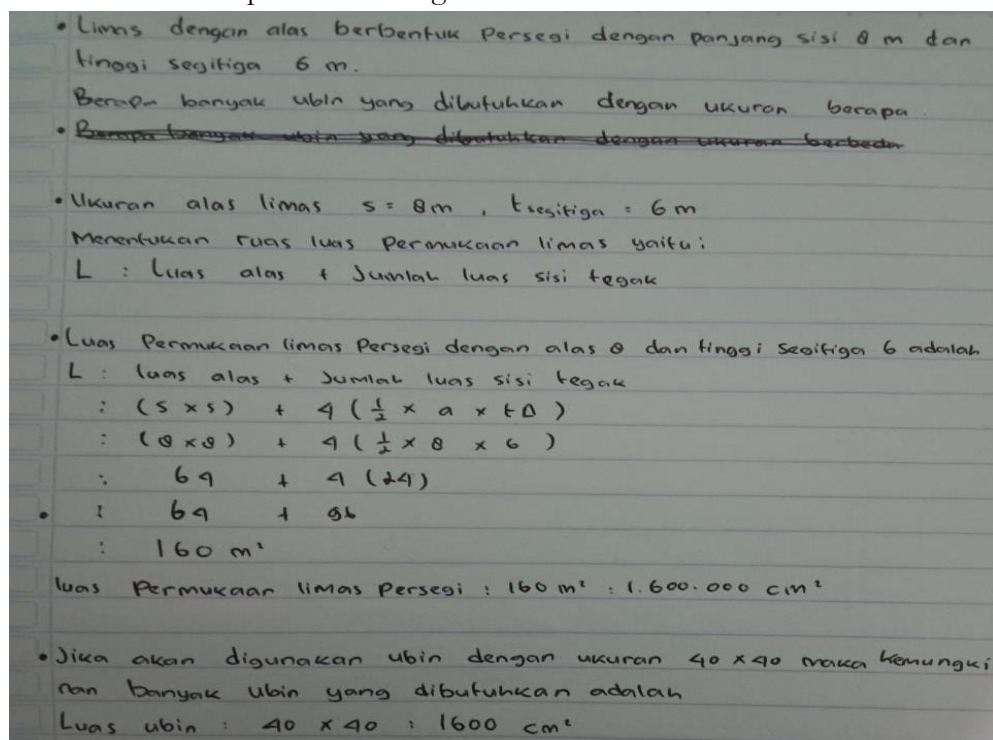 • Limas dengan alas berbentuk persegi dengan panjang sisi 8 m dan
tinggi segitiga 6 m.
Berapa banyak ubin yang dibutuhkan dengan ukuran berapa.
• Berapa banyak ubin yang dibutuhkan dengan ukuran berbeda
• Ukuran alas limas s = 8m , t segitiga = 6 m
Menentukan ruas luas permukaan limas yaitu :
L : Luas alas + Jumlah luas sisi tegak
• Luas Permukaan limas Persegi dengan alas 8 dan tinggi segitiga 6 adalah
L : luas alas + Jumlah luas sisi tegak
: (s x s) + 4 ( 1/2 x a x tΔ )
: (8 x 8) + 4 ( 1/2 x 8 x 6 )
: 64 + 4 (24)
• : 64 + 96
: 160 m²
luas Permukaan limas Persegi : 160 m² : 1.600.000 cm²
• Jika akan digunakan ubin dengan ukuran 40 x 40 maka kemungki
nan banyak ubin yang dibutuhkan adalah
Luas ubin : 40 x 40 : 1600 cm²